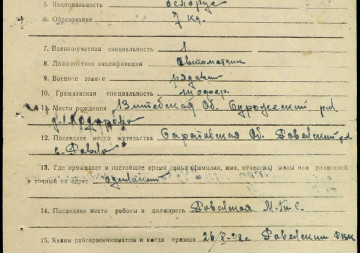 5. Национальность белорус
6. Образование 7 кл.
7. Военно-учетная специальность 1
8. Должностная квалификация Автоматчик
9. Военное звание рядовой
10. Гражданская специальность
11. Место рождения Витебская Об. р-н
12. Последнее место жительства Саратовская Об. Ровенский р-н
с. Ровное
13. Где проживает в настоящее время семья (фамилия, имя, отчество) жены или родителей
и точный их адрес одинокий
14. Последнее место работы и должность Ровенская М.Т.С.
15. Каким райгорвоенкоматом и когда призван Ровенский РВК